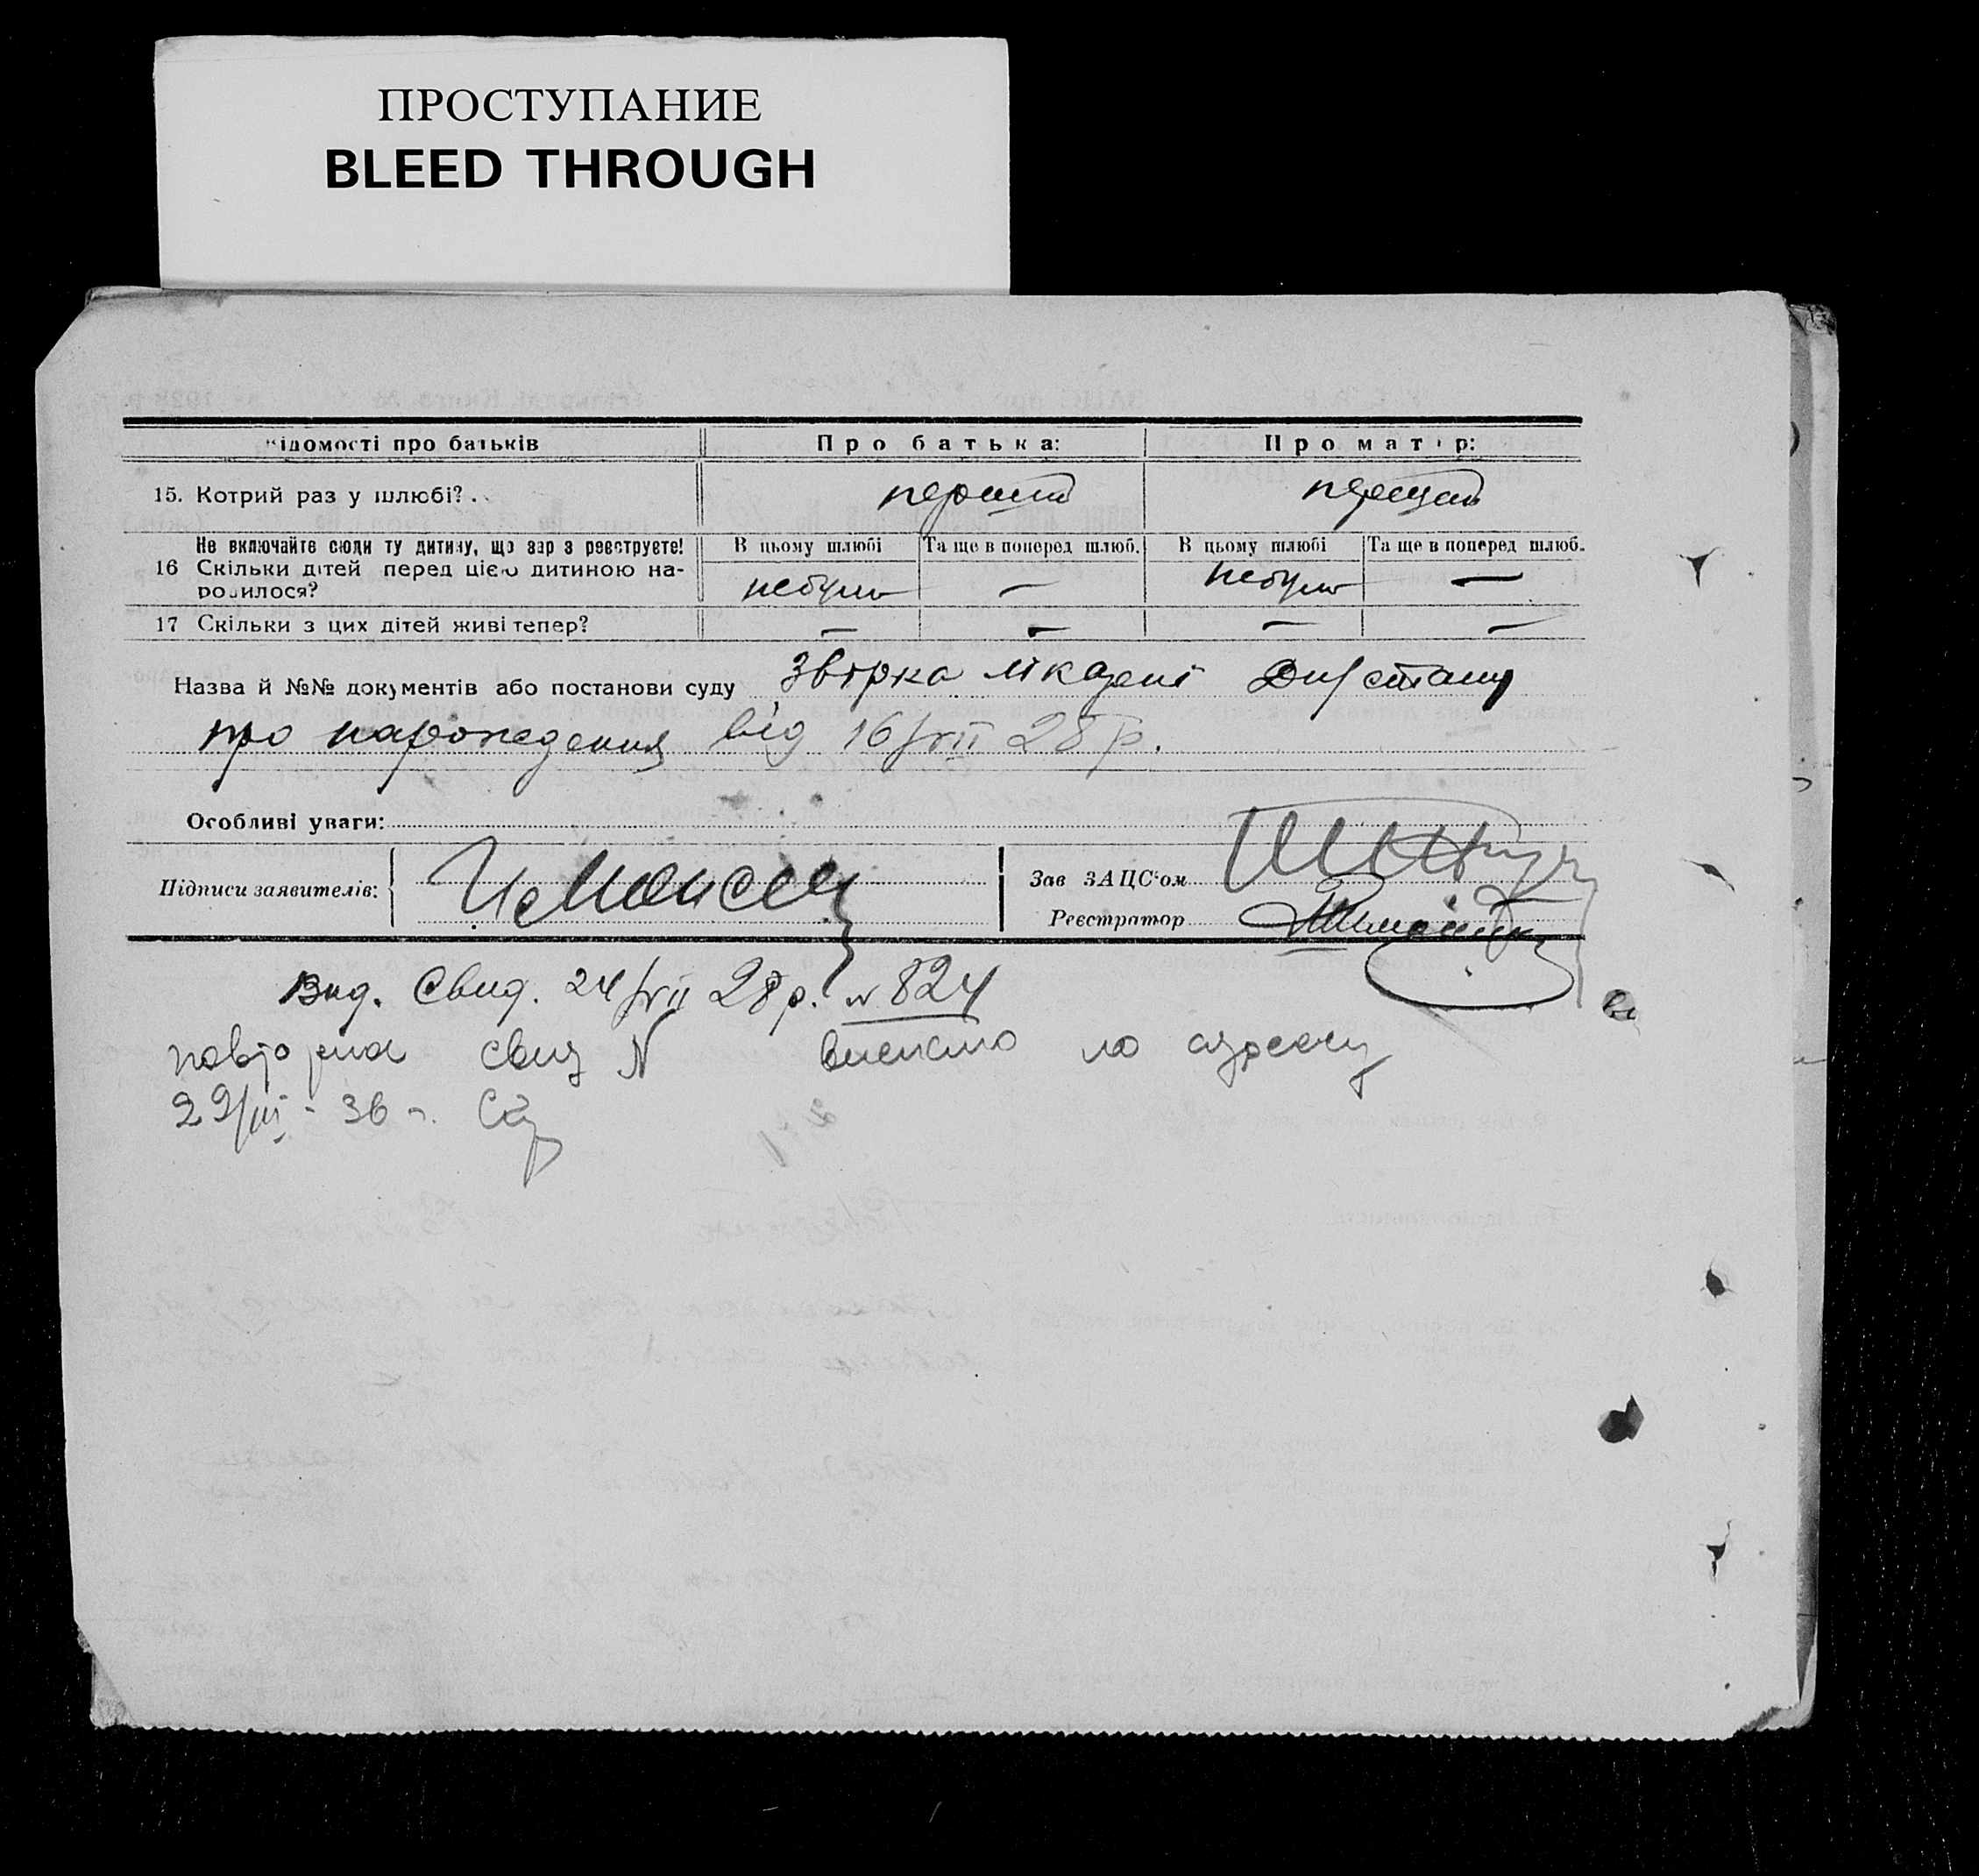 ПРОСТУПАНИЕ
BLEED THROUGH
ідомості про батьків Про батька: Про мат р:
15. Котрий раз у шлюбі?. перший перший
Не включайте сюди ту дитину, що зар з реєструєте! В цьому шлюбі Та ще в поперед шлюб. В цьому шлюбі Та ще в поперед шлюб.
16 Скільки дітей перед цією дитиною на- небуло — небуло —
родилося?
17 Скільки з цих дітей живі тепер? — — — —
Назва й №№ документів або постанови суду
про народження від 16/VII 28 р.
Особливі уваги:
Підписи заявителів:
Зав ЗАЦС'ом
Реєстратор
Вид. Свид. 24/VII 28 р. № 824
повторна свид N по адресу
29/ - 36 г.